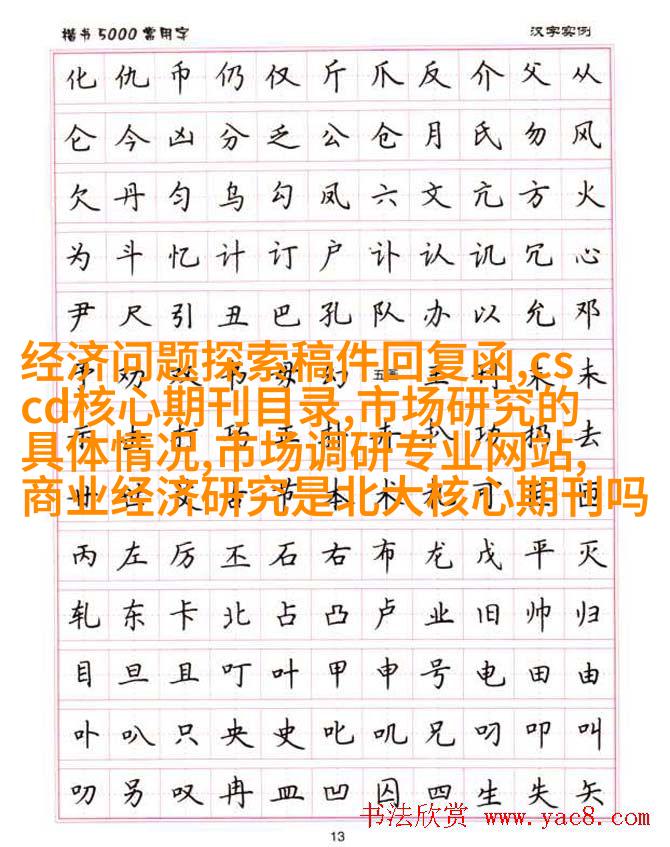 楷书5000常用字 汉字实例
化仇币仍仅斤爪反介父从
仑今凶分乏公仓月氏勿风
欠丹匀乌勾凤六文亢方火
为斗忆计订户讣认讥冗心
尹尺引丑巴孔队办以允邓
经济问题探索稿件回复函,cs
cd核心期刊目录,市场研究的
具体情况,市场调研专业网站,
商业经济研究是北大核心期刊吗
丙左厉丕石右布龙戊平灭
轧东卡北占凸卢业旧帅归
目旦且叮叶甲申号电田由
卟叭只央史叱叽兄叼叩叫
叨另叹冉皿凹囚四生失矢
书法欣赏 www.yac8.com
13